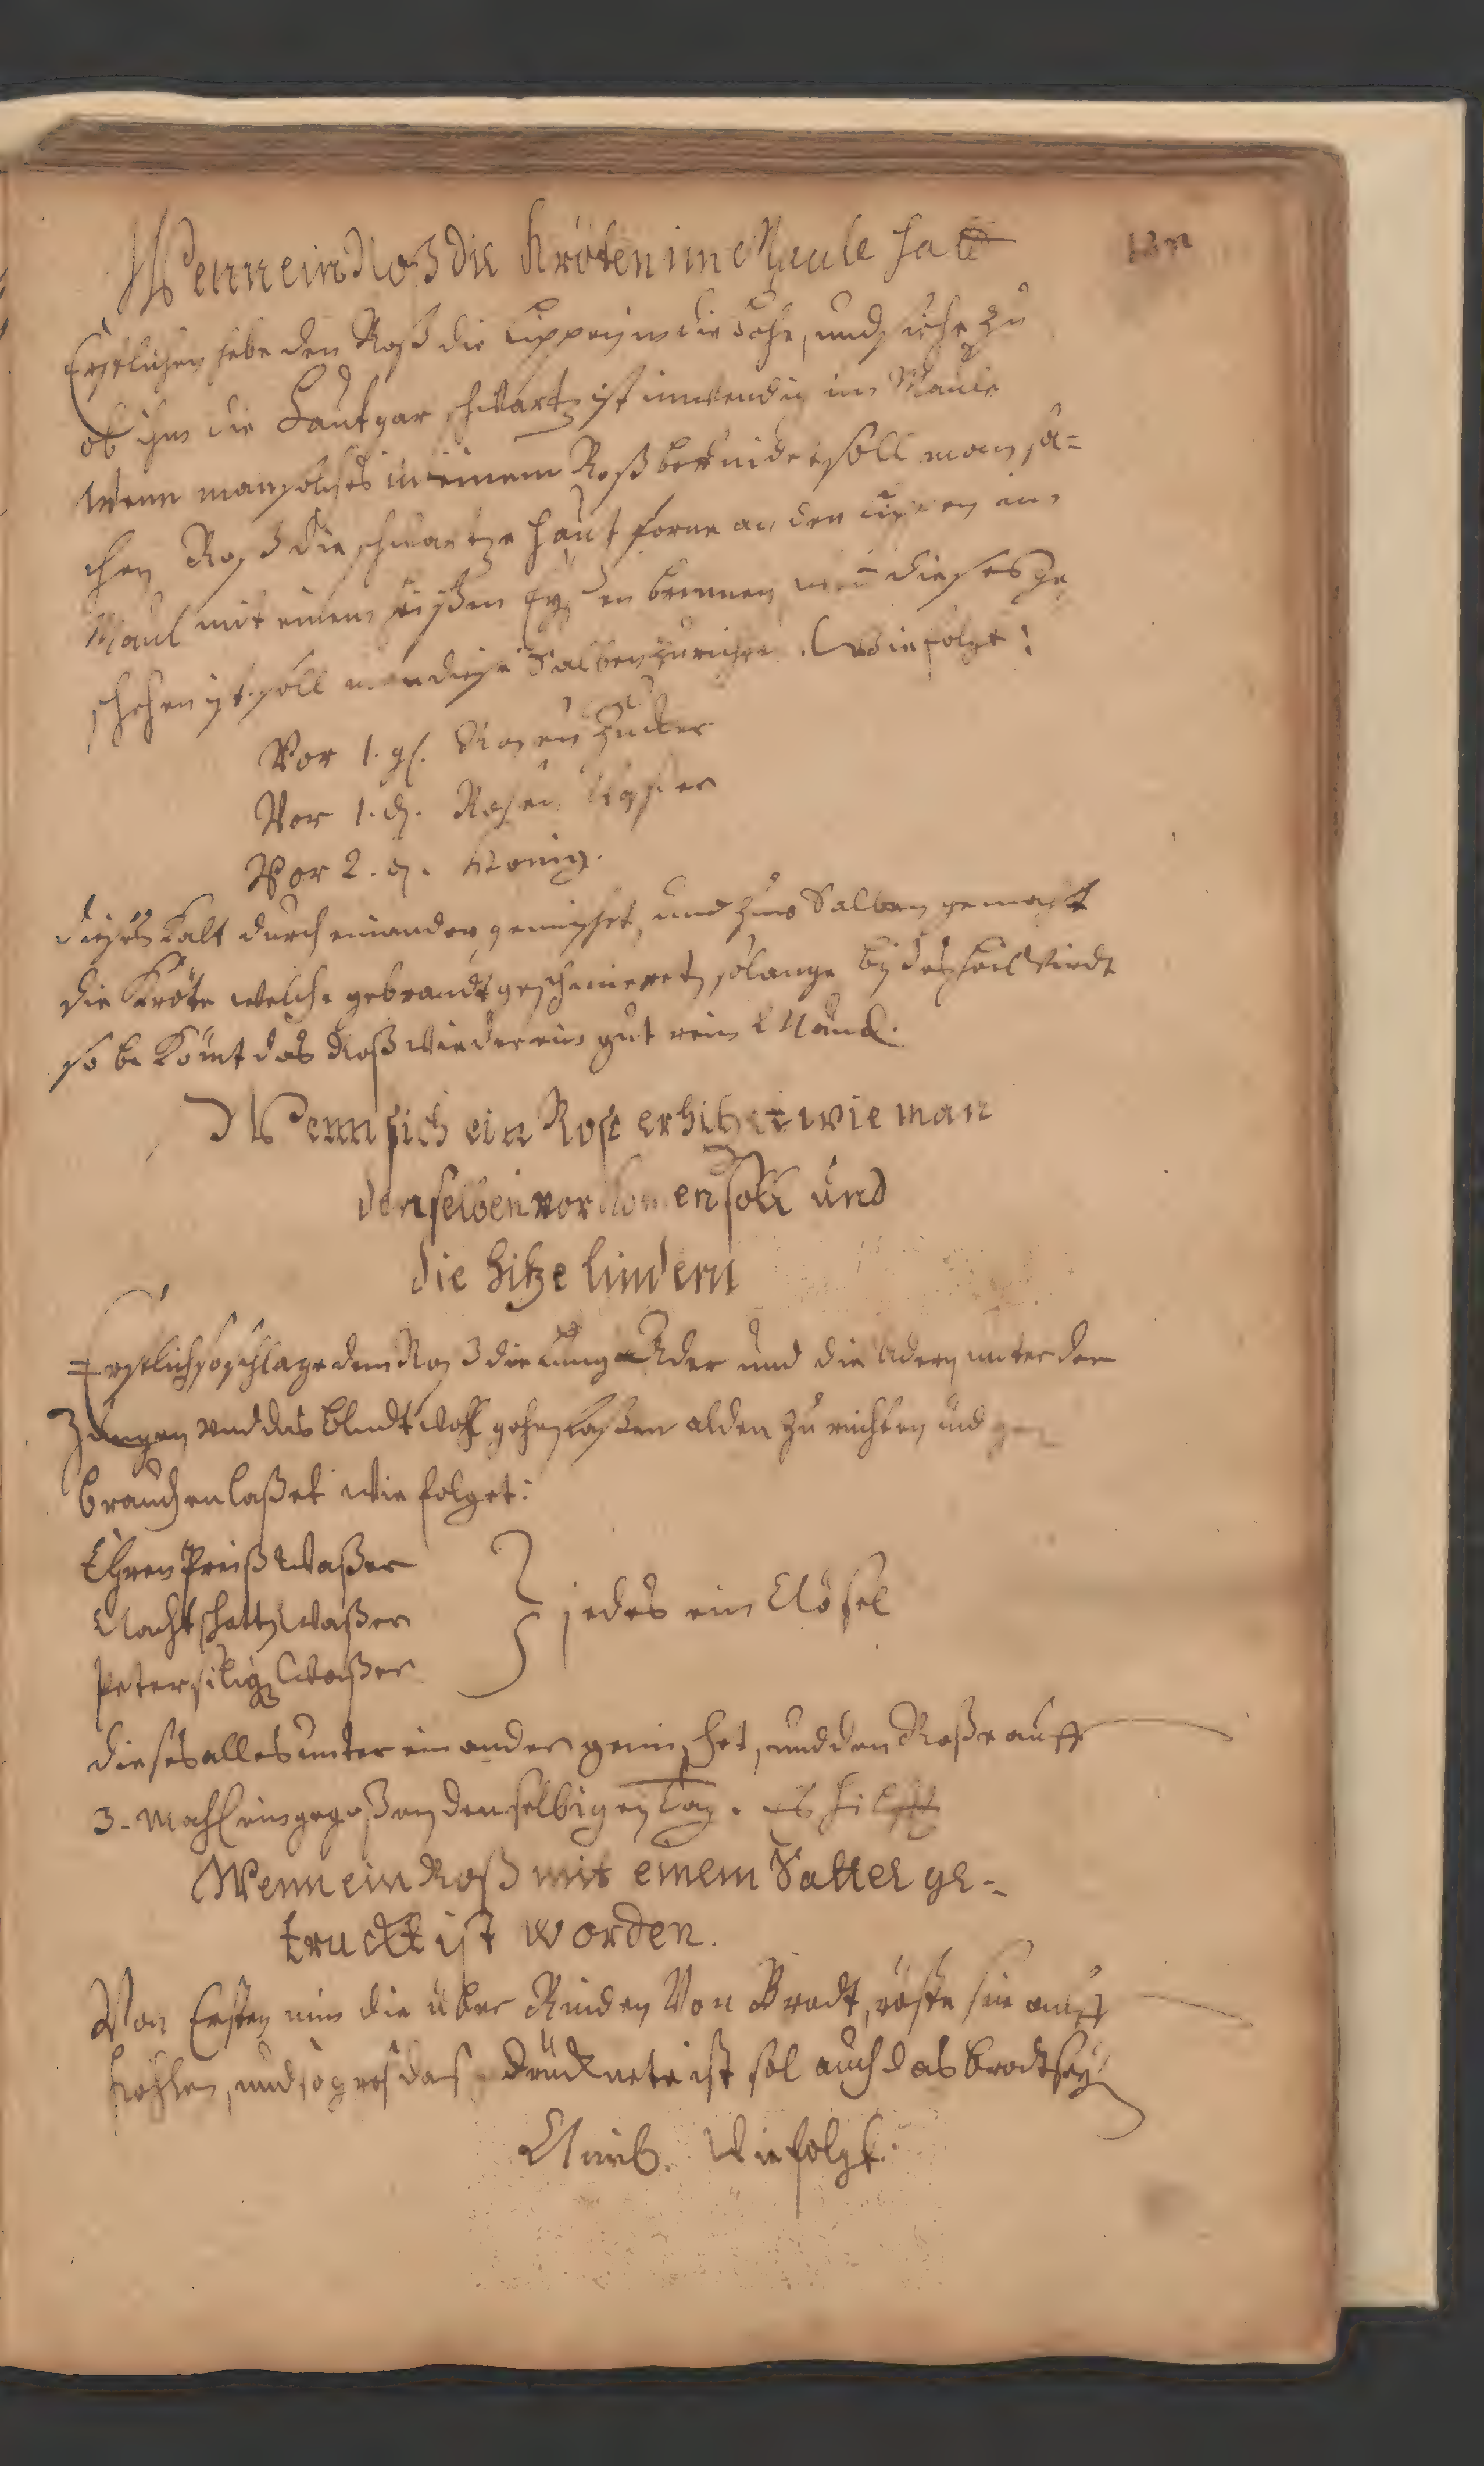 Wenn ein Roß die Kröten im Maule hatt
Erstlichen hebe den Roß die Lippen in die Höhe, und siehe zu
ob ihm die Haut gar schwartz ist inwendig im Maule
Wenn man solches in einem Roß befindet soll man sol=
chen Roß die schwartze Haut forne an den Lippen im
Maul mit einem heißen Eysen brennen, wen dieses ge
schehen ist soll man diese Salben zurichten. Wie folget:
Vor 1. gl. Rosen Zucker
Vor 1. d. Rosen Waßer
Vor 2. d. Honig.
dieses kalt durch einander gemischet, und zur Salben gemacht
die Kröte welche gebrandt geschmieret, solange bis das heil Wirdt
so bekömt das Roß wieder ein gut rein Maul.
Wenn sich ein Roß erhitzet wie man
denselben vorkomen soll und
die hitze lindern
Erstlich so schlage dem Roß die Lung Ader und die Adern unter der
Zungen und das Bludt wohl gehen laßen alden zu richten und ge
brauchen laßet wie folget:
Ehren Preiß Waßer
Nachtschatt Waßer
Petersilig Waßer
} jedes ein Nösel
dieses alles unter einander gemischet, und den Roße auff
3. Mahl eingegoßen denselbigen Tag. es hilfft
Wenn ein Roß mit einem Sattel ge=
truckt ist worden.
Von Ersten nim die über Rinden Von Brodt, röste sie auff
Kohlen, und so gros das gedrucknete ist sol auch das Brodt sey
Wie folgt.